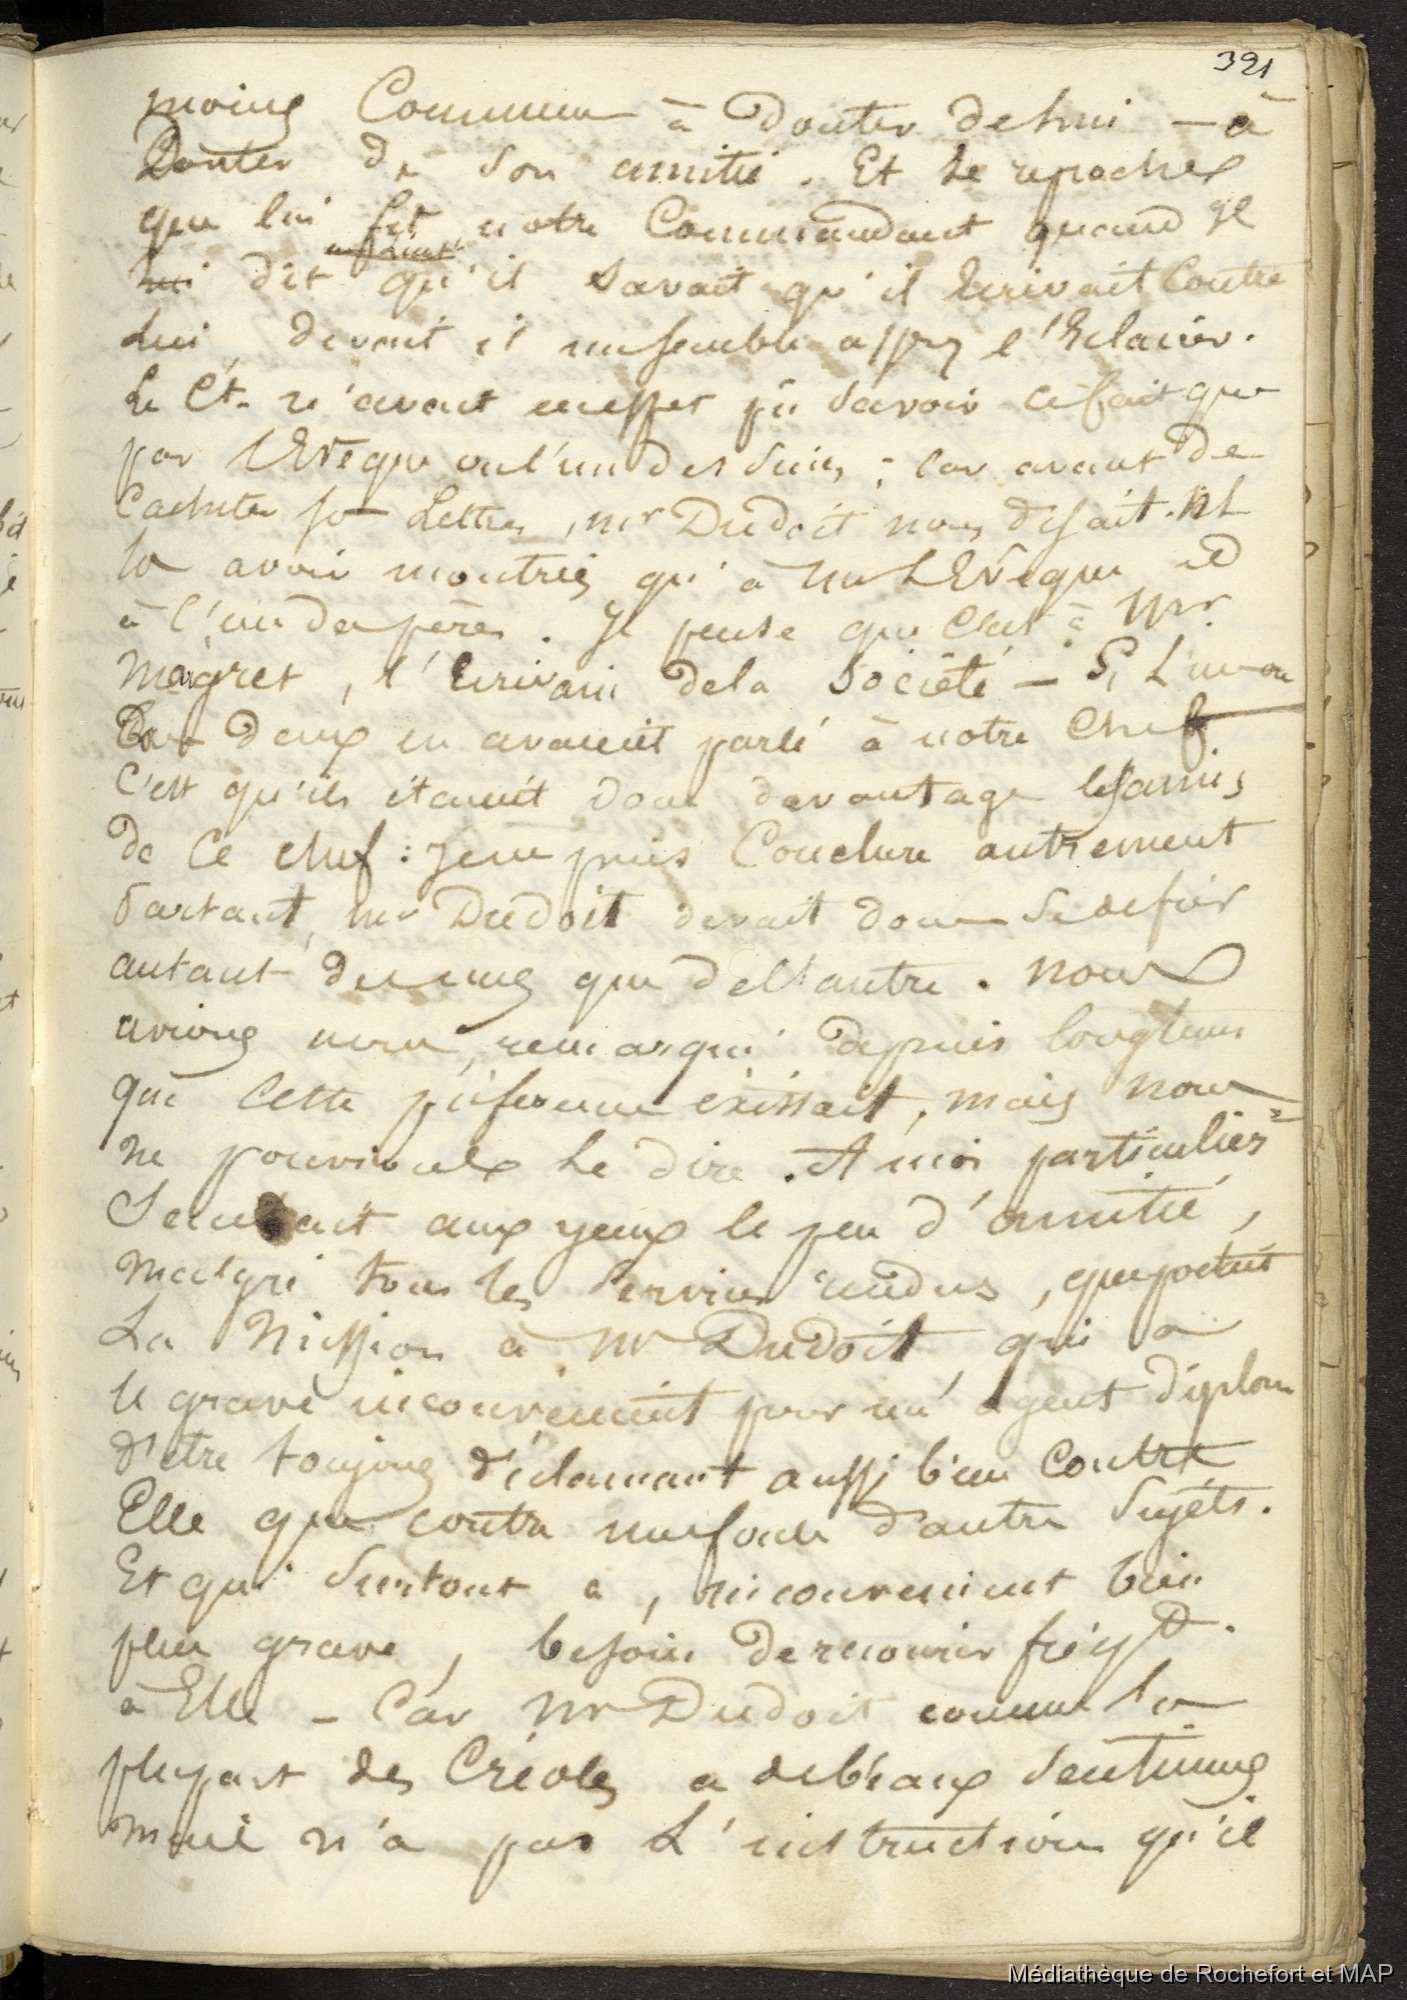 391
moins Commun à Douter de lui — à
Douter de son amitié. Et le reproches
que lui fit notre Commandant quand il
lui dit qu'il savait qu'il Ecrivait Contre
Lui, devait il me semble assez l'Eclairer.
Le Ct. n'avait en effet pû savoir ce fait que
par l'Evêque ou l'un des siens ; Car avant de
Cacheter sa Lettre, mr Dudoit nous disait. NL
la avoir montrés qu'à Mr L'Evêque et
à l'un des pères. Je pense que C'est à Mr.
Maigret, l'Ecrivain de la Société — Si L'un ou
tous deux en avaient parlé à notre Chef
C'est qu'ils étaient donc davantage les amis
de Ce chef : je ne puis Conclure autrement
Partant, mr Dudoit devait donc se defier
autant des uns que de l'autre. nous
avions remarqué depuis longtems
que Cette préférence éxistait, mais nous
ne pouvions le dire. A moi particulier=
Sautait aux yeux le peu d'amitié,
Malgré tous les services rendus, que portait
La Mission à Mr Dudoit, qui a
le grave inconvénient pour un agent diplom
d'etre toujours déclamant aussi bien Contre
Elle que contre une foule d'autre Sujets.
Et qui Surtout a, inconvenient bien
plus grave, besoin de recourir freqt.
à Elle — Car Mr Dudoit comme la
plupart des Créoles a de beaux Sentimens
mais n'a pas L'instruction qu'il
Médiathèque de Rochefort et MAP